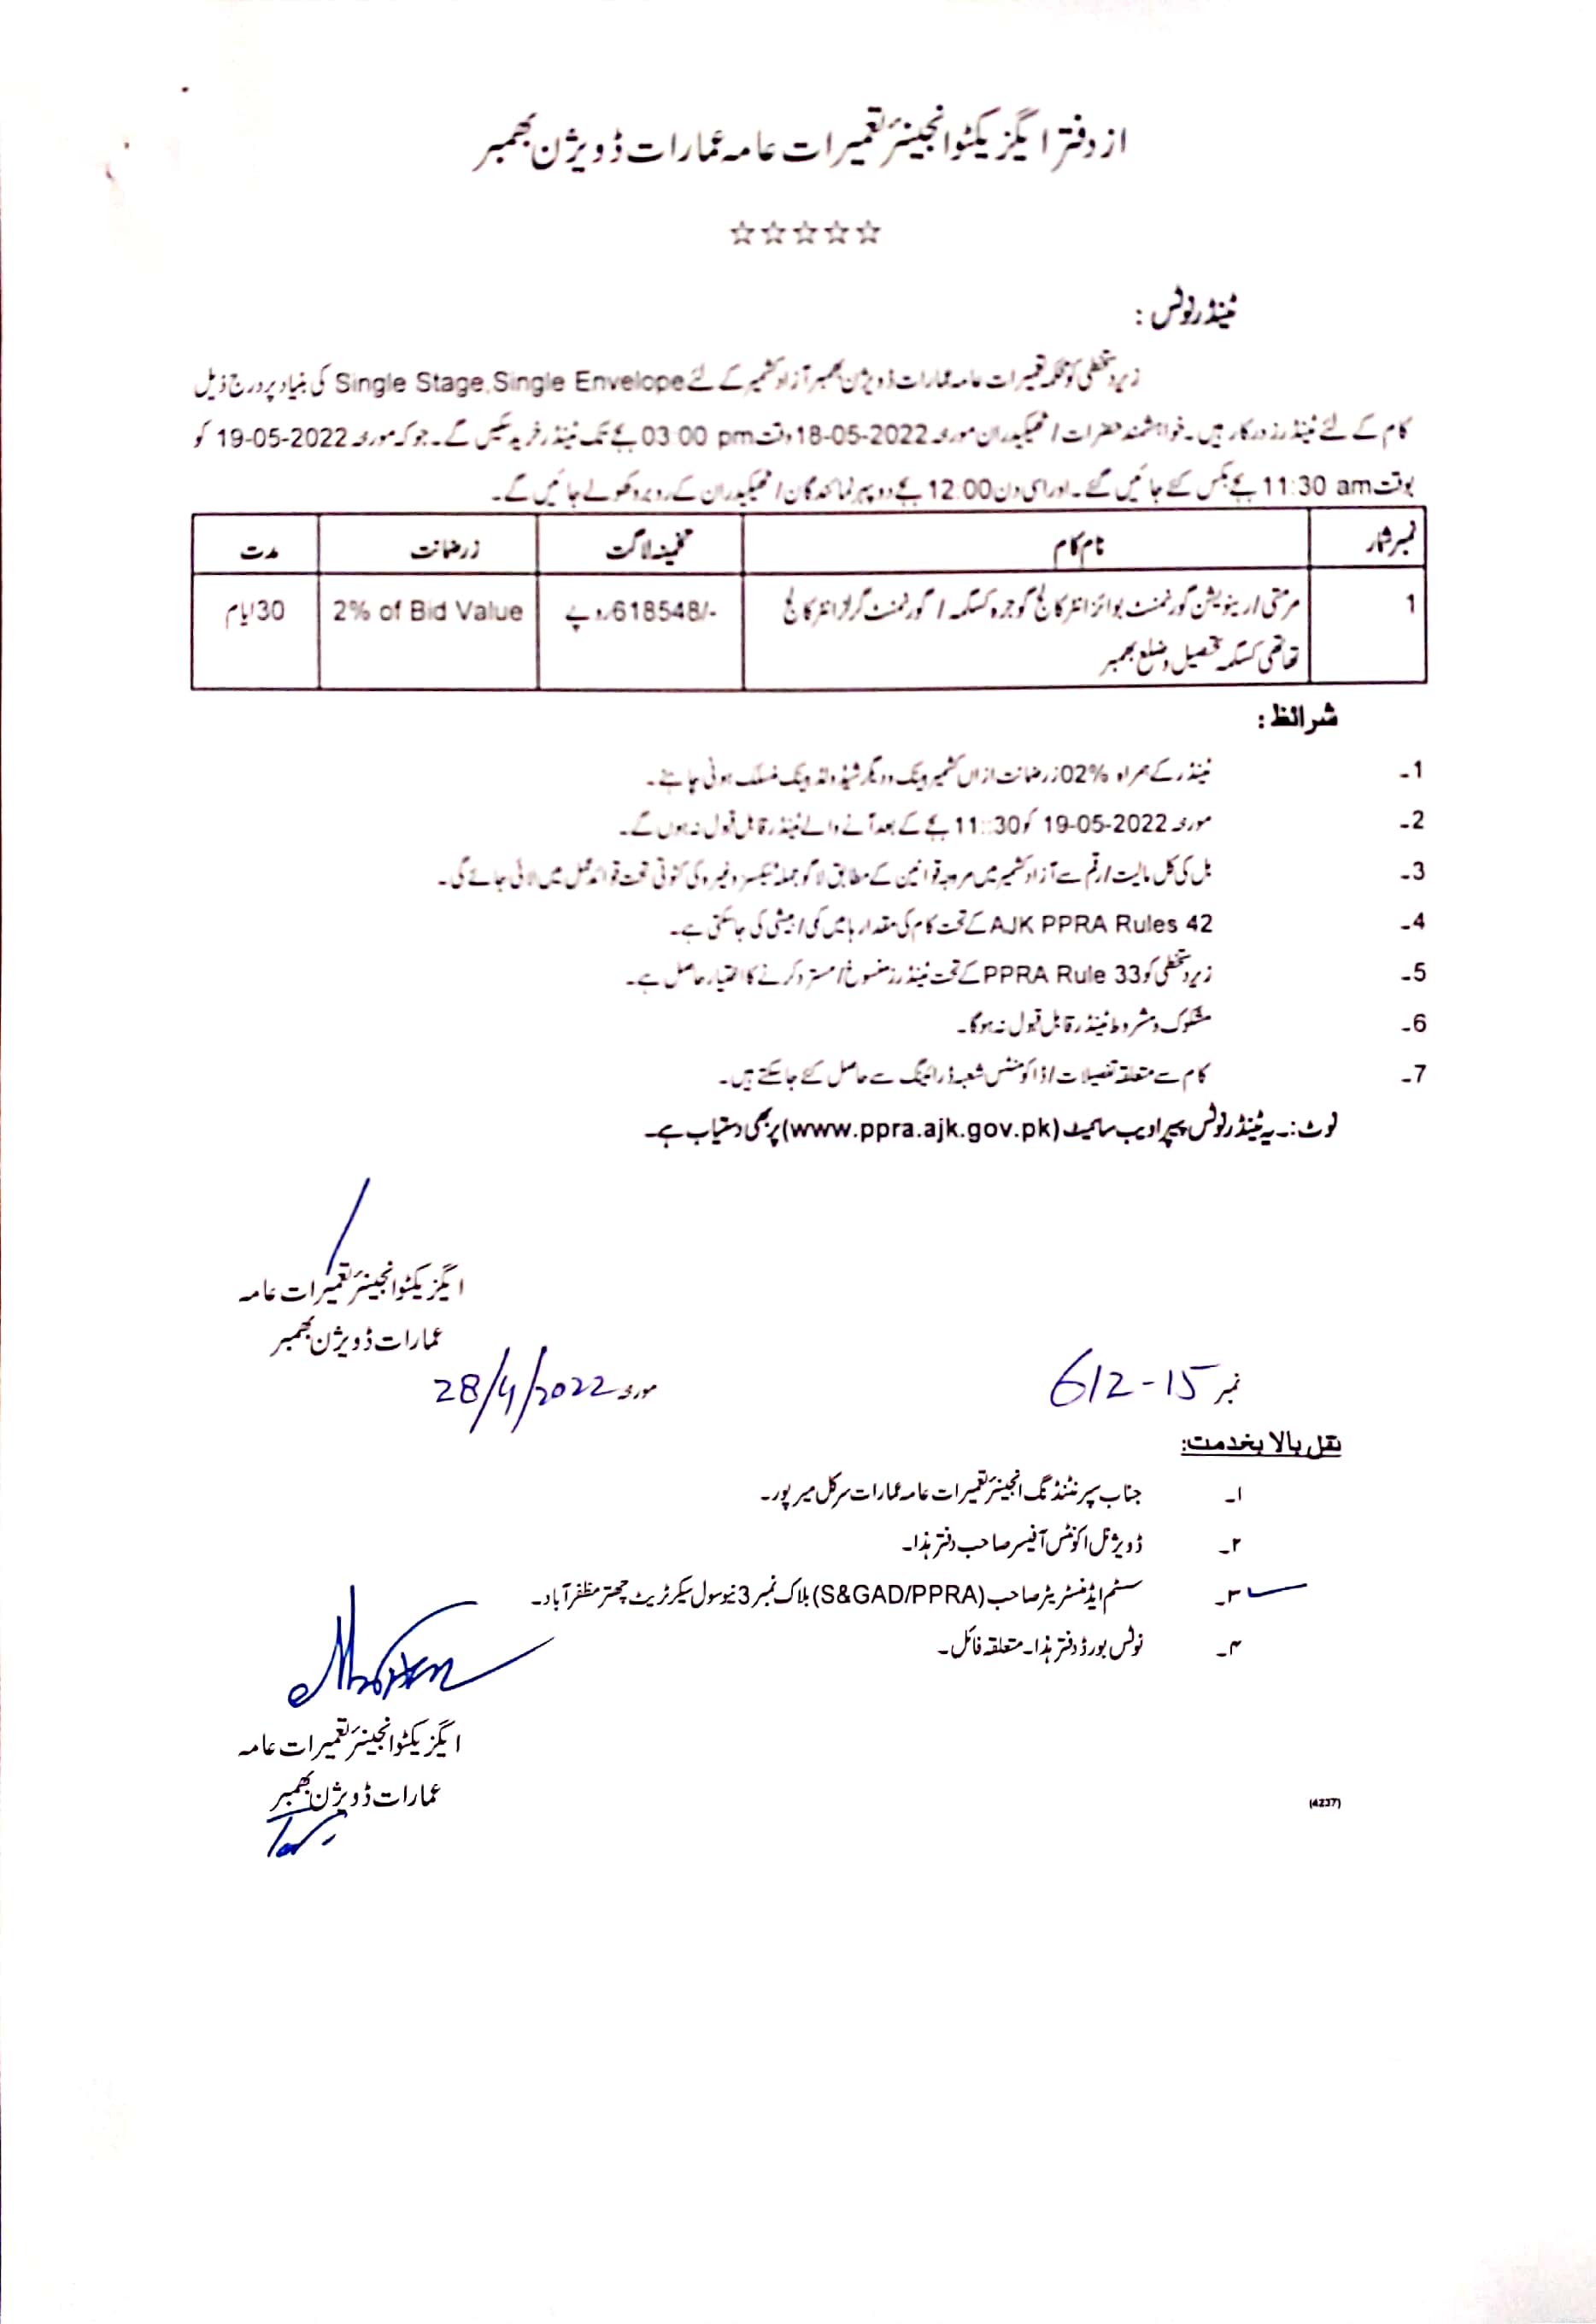 از دفتر ایگزیکٹو انجینئر تعمیرات عامہ عمارات ڈویژن بھمبر
☆☆☆☆☆
ٹینڈر نوٹس :
زیر دستخطی کو محکمہ تعمیرات عامہ عمارات ڈویژن بھمبر آزاد کشمیر کے لئے Single Stage,Single Envelope کی بنیاد پر درج ذیل
کام کے لئے ٹینڈرز درکار ہیں۔ خواہشمند حضرات / ٹھیکیداران مورخہ 18-05-2022 وقت 03:00 pm بجے تک ٹینڈر خرید سکیں گے۔ جو کہ مورخہ 19-05-2022 کو
بوقت 11:30 am بجے بکس کئے جائیں گے۔ اور اسی دن 12:00 بجے دوپہر نمائندگان / ٹھیکیداران کے روبرو کھولے جائیں گے۔
نمبر شمار نام کام تخمینہ لاگت زر ضمانت مدت
1 مرمتی / رینویشن گورنمنٹ بوائز انٹر کالج گوجرہ کسگمہ / گورنمنٹ گرلز انٹر کالج 618548/- روپے 2% of Bid Value 30 ایام
تھاتھی کسگمہ تحصیل و ضلع بھمبر
شرائط :
1۔ ٹینڈر کے ہمراہ 02% زر ضمانت ازاں کشمیر بینک و دیگر شیڈولڈ بینک منسلک ہونی چاہئے۔
2۔ مورخہ 19-05-2022 کو 11::30 بجے کے بعد آنے والے ٹینڈر قابل قبول نہ ہوں گے۔
3۔ بل کی کل مالیت / رقم سے آزاد کشمیر میں مروجہ قوانین کے مطابق لاگو جملہ ٹیکسز وغیرہ کی کٹوتی تحت قواعد عمل میں لائی جائے گی۔
4۔ AJK PPRA Rules 42 کے تحت کام کی مقدار ہا میں کمی / بیشی کی جا سکتی ہے۔
5۔ زیر دستخطی کو PPRA Rule 33 کے تحت ٹینڈرز منسوخ / مسترد کرنے کا اختیار حاصل ہے۔
6۔ مشکوک و مشروط ٹینڈر قابل قبول نہ ہوگا۔
7۔ کام سے متعلقہ تفصیلات / ڈاکومنٹس شعبہ ڈرائینگ سے حاصل کئے جا سکتے ہیں۔
نوٹ:۔ یہ ٹینڈر نوٹس پیپرا ویب سائیٹ (www.ppra.ajk.gov.pk) پر بھی دستیاب ہے۔
ایگزیکٹو انجینئر تعمیرات عامہ
عمارات ڈویژن بھمبر
نمبر 612-15 مورخہ 28/4/2022
نقل بالا بخدمت:
۱۔ جناب سپرنٹنڈنگ انجینئر تعمیرات عامہ عمارات سرکل میرپور۔
۲۔ ڈویژنل اکونٹس آفیسر صاحب دفتر ہذا۔
۳۔ سسٹم ایڈمنسٹریٹر صاحب (S&GAD/PPRA) بلاک نمبر 3 نیو سول سیکرٹریٹ چھتر مظفر آباد۔
۴۔ نوٹس بورڈ دفتر ہذا۔ متعلقہ فائل۔
ایگزیکٹو انجینئر تعمیرات عامہ
عمارات ڈویژن بھمبر
(4237)